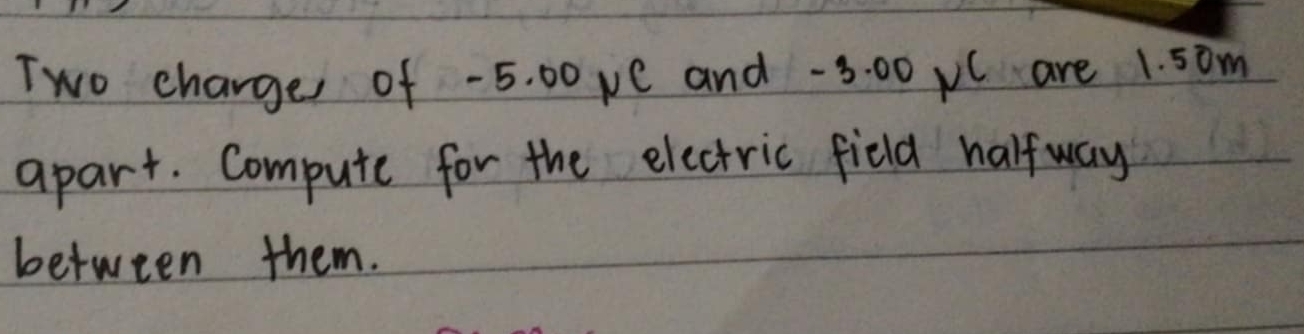 Two charges of -5.00 μC and -3.00 μC are 1.50m
apart. Compute for the electric field halfway
between them.